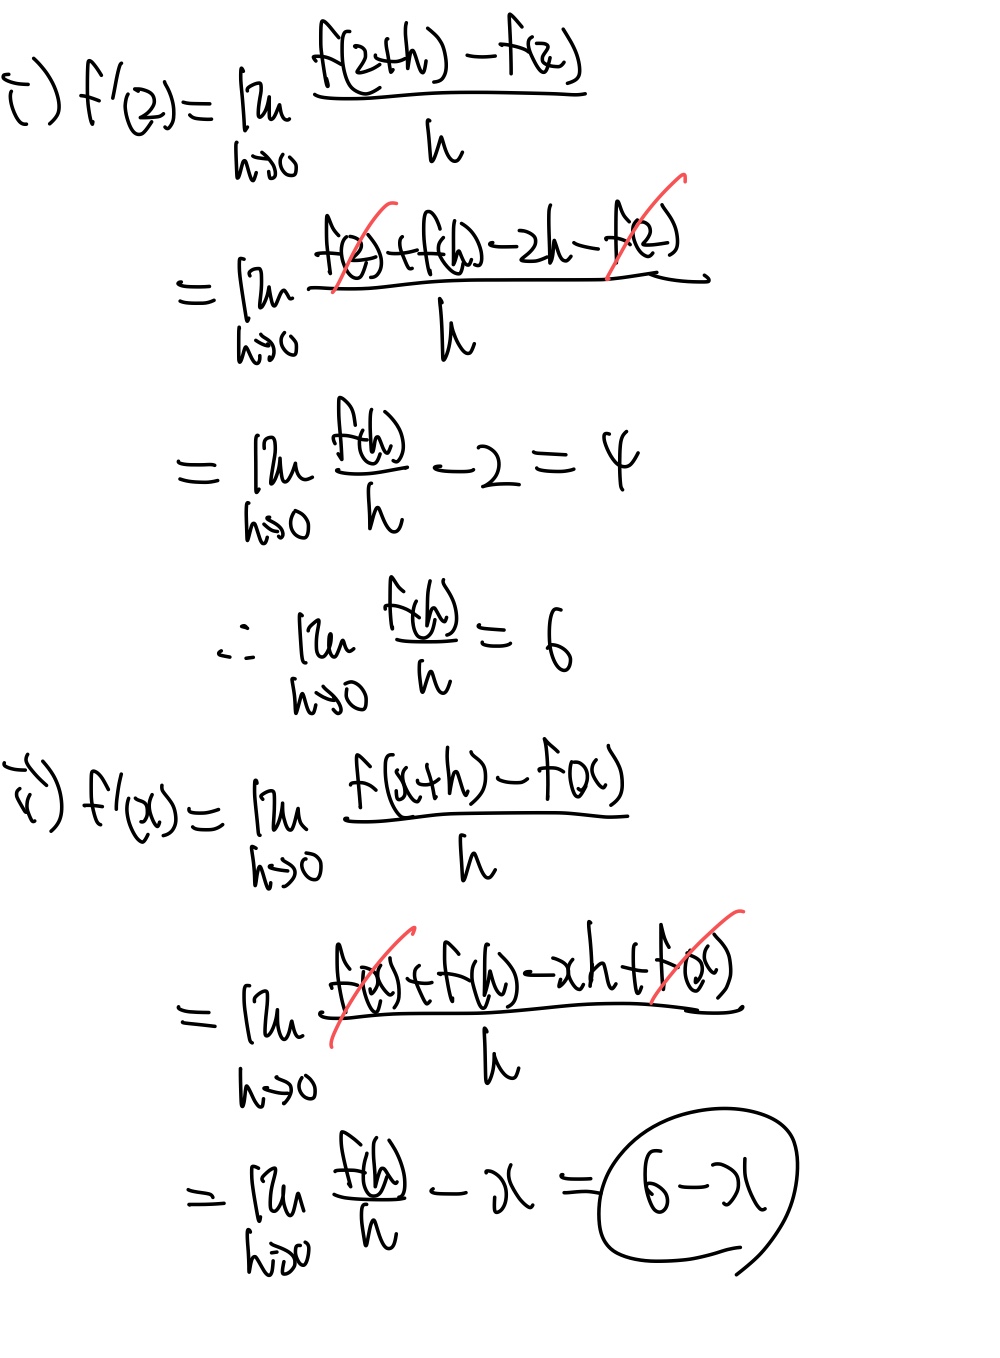 i) f'(2) = lim_{h→0} \frac{f(2+h) - f(2)}{h}
= lim_{h→0} \frac{f(2) + f(h) - 2h - f(2)}{h}
= lim_{h→0} \frac{f(h)}{h} - 2 = 4
∴ lim_{h→0} \frac{f(h)}{h} = 6
ii) f'(x) = lim_{h→0} \frac{f(x+h) - f(x)}{h}
= lim_{h→0} \frac{f(x) + f(h) - xh + f(x)}{h}
= lim_{h→0} \frac{f(h)}{h} - x = 6 - x